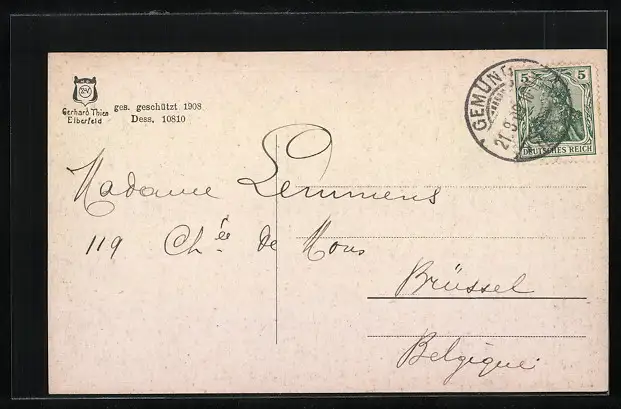 Gerhard Thien
Elberfeld
ges. geschützt 1908
Dess. 10810
GEMÜND
21.8.
5 5
DEUTSCHES REICH
Madame Lemmens
119 Chée de Mons
Brüssel
Belgique